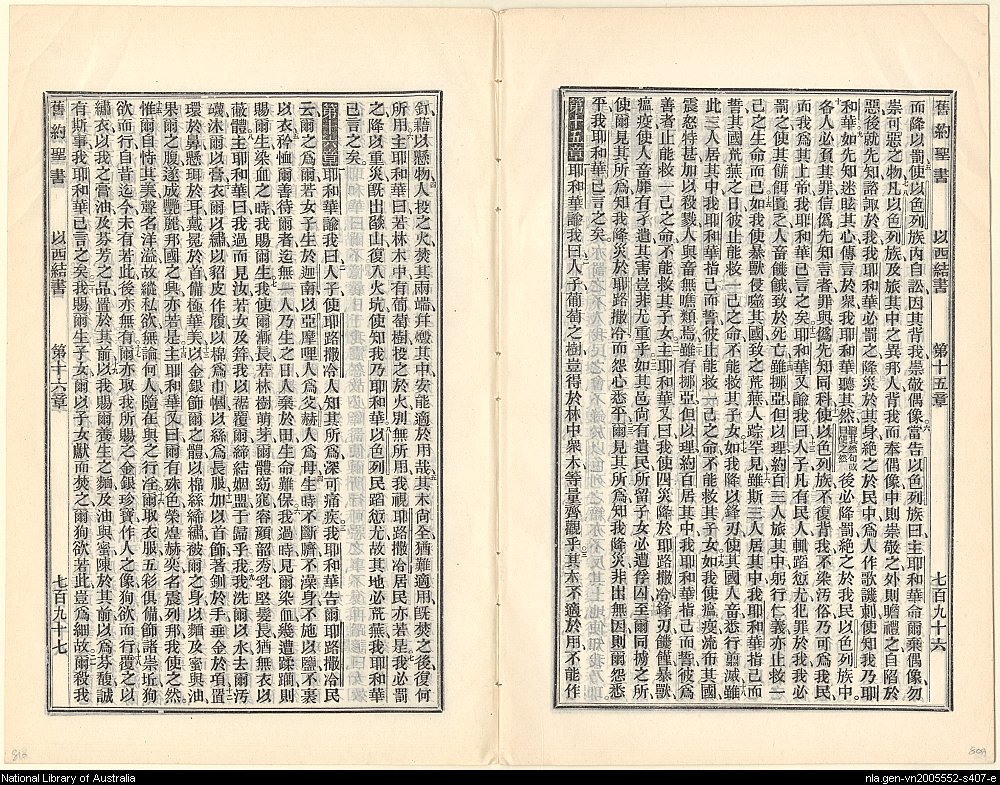 舊約聖書　以西結書　第十五章　七百九十六
而降以罰使以色列族內自訟因其背我崇敬偶像當告以色列族曰主耶和華命爾棄偶像勿
崇可惡之物凡以色列族及旅其中之異邦人背我而奉偶像中則崇敬之外則瞻禮之自陷於
惡後就先知諮諏於我我耶和華必罰之降災於其身絕之於民中爲人作歌譏刺使知我乃耶
和華如先知迷眩其心傳言於衆我耶和華聽其然後必降罰絕之於我民以色列族中
各人必負其罪信僞先知言者罪與僞先知同科使以色列族不復背我不染汚俗乃可爲我民
而我爲其上帝我耶和華已言之矣耶和華又諭我曰人子凡有民人輒蹈愆尤犯罪於我我必
罰之使其餅餌匱乏人畜饑餓致於死亡雖挪亞但以理約百三人旅其中躬行仁義亦止救一
己之生命而已如我使暴獸侵噬其國致之荒蕪人踪罕見雖斯三人居其中我耶和華指己而
誓其國荒蕪之日彼止能救一己之命不能救其子女如我降以鋒刃使其國人畜悉行翦滅雖
此三人居其中我耶和華指己而誓彼止能救一己之命不能救其子女如我使瘟疫流布其國
震怒特甚加以殺戮人與畜無噍類焉雖有挪亞但以理約百居其中我耶和華指己而誓彼爲
善者止能救一己之命不能救其子女主耶和華又曰我使四災降於耶路撒冷鋒刃饑饉暴獸
瘟疫使人畜罪有孑遺其害豈非尤重乎如其邑尙有遺民所留子女必遭俘囚至爾同擄之所
使爾見其所爲知我降災於耶路撒冷而怨心悉平爾見其所爲知我降災非出無因則爾怨悉
平我耶和華已言之矣
第十五章耶和華諭我曰人子葡萄之樹豈得於林中衆木等量齊觀乎其木不適於用不能作
釘藉以懸物人投之火焚其兩端幷燬其中安能適於用哉其木尙全猶難適用旣焚之後復何
所用主耶和華曰若林木中有葡萄樹投之於火別無所用我視耶路撒冷居民亦若是我必罰
之降以重災旣出燄山復入火坑使知我乃耶和華以色列民蹈愆尤故其地必荒蕪我耶和華
已言之矣
第十六章耶和華諭我曰人子使耶路撒冷人知其所爲深可痛疾我耶和華有言告爾耶路撒冷民
云爾之爲爾若女子生於迦南以亞摩哩人爲父赫人爲母生時不斷臍不澡身不施以鹽不裹
以衣矜恤爾善待爾者迄無一人乃生之日人棄於田生命難保我過時見爾染血幾遭蹂躪則
賜爾生染血之時我賜爾生我使爾漸長若林樹萌芽爾體窈窕容顏韶秀乳堅髮長猶無衣以
蔽體主耶和華曰我過而見汝若女及筓我以裾覆爾締結姻盟于歸乎我我洗爾以水去爾汚
衊沐爾以膏衣爾以繡以貂皮作履以棉爲巾幗以絲爲長服加以首飾著釧於手垂金於項置
環於鼻懸珥於耳戴冕於首備極華美以金銀飾爾之體以棉絲綺繡被爾之身以麵及蜜與油
果爾之腹遂成艷麗邦國之興亦若是主耶和華又曰爾有殊色榮煌赫奕名震列邦我使之然
惟爾自恃其美聲名洋溢故縱私欲無論何人隨在與之行淫爾取衣服五彩俱備飾諸崇坵狥
欲而行自昔迄今未有若此後亦無有爾亦取我所賜之金銀珍寶作人之像狥欲而行覆之以
繡衣以我之膏油及芬芳之品置於其前以我賜爾養生之麵及油與蜜陳於其前以爲芬馥誠
有斯事我耶和華已言之矣我賜爾生子女爾以子女獻而焚之爾狥欲若此豈爲細故爾殺我
舊約聖書　以西結書　第十六章　七百九十七
National Library of Australia
nla.gen-vn2005552-s407-e